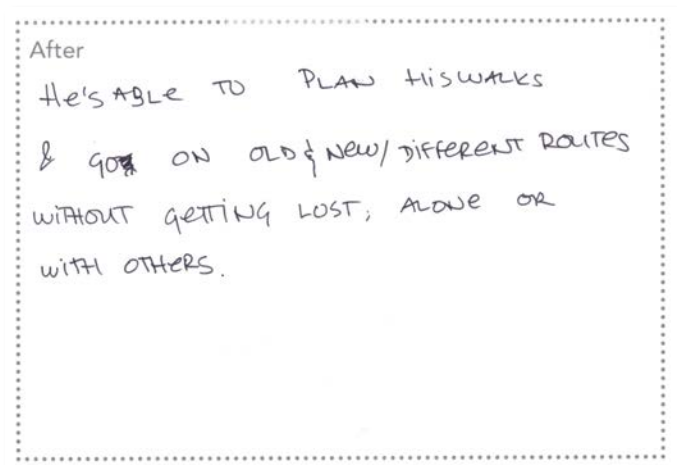 After
He's ABLE TO PLAN HIS WALKS
& go ON OLD & NEW/DIFFERENT ROUTES
WITHOUT GETTING LOST, ALONE OR
WITH OTHERS.